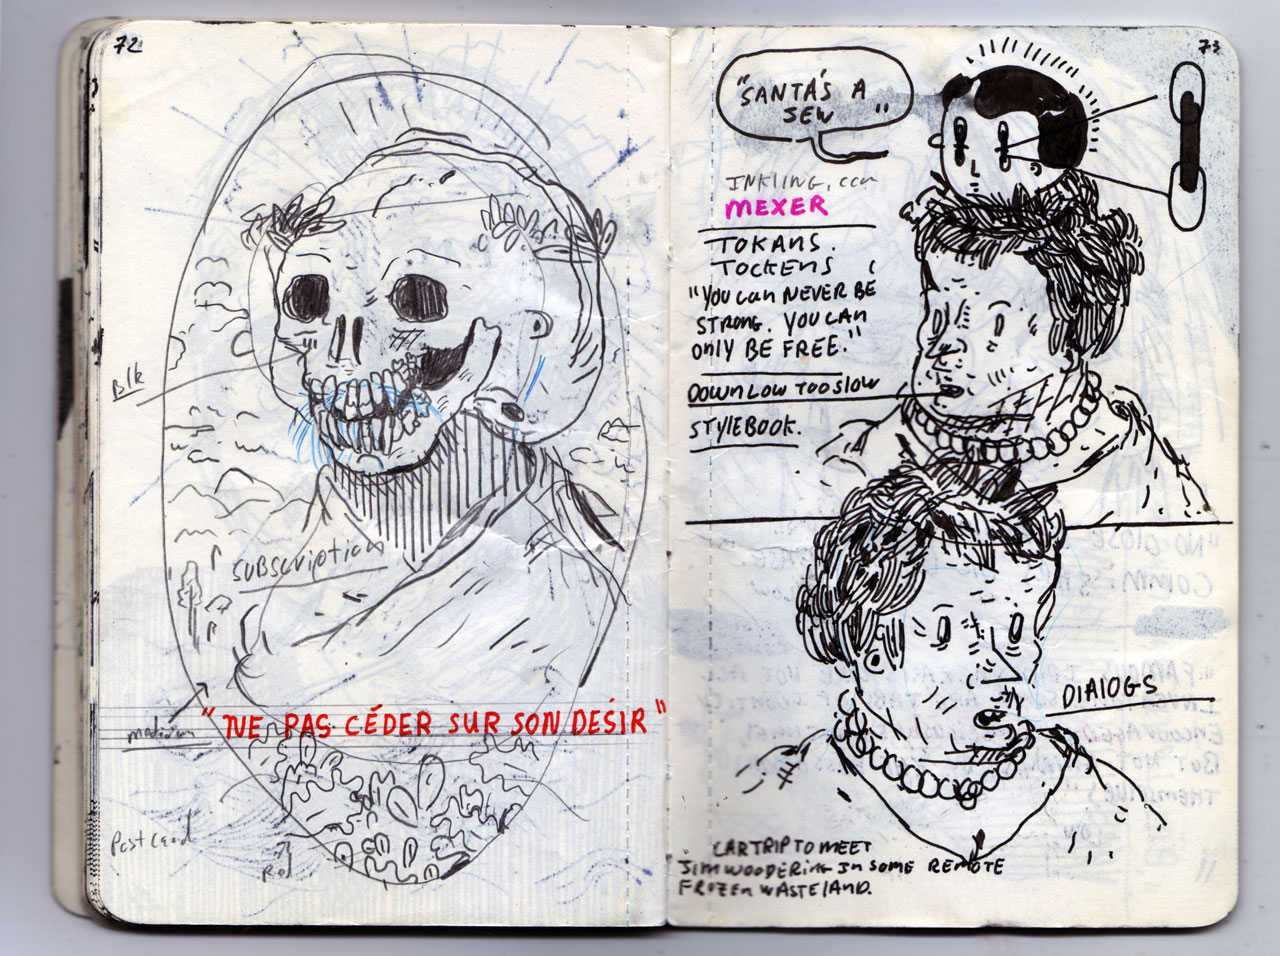 72
Blk
SUBSCRIPTION
"NE PAS CÉDER SUR SON DÉSIR"
medium
Postcard
Red
73
"SANTA'S A
JEW"
INKLING.com
MEXER
TOKANS.
TOCKENS (
"YOU CAN NEVER BE
STRONG. YOU CAN
ONLY BE FREE."
DOWN LOW TOO SLOW
STYLEBOOK.
DIALOGS
CAR TRIP TO MEET
JIM WOODERING IN SOME REMOTE
FROZEN WASTELAND.